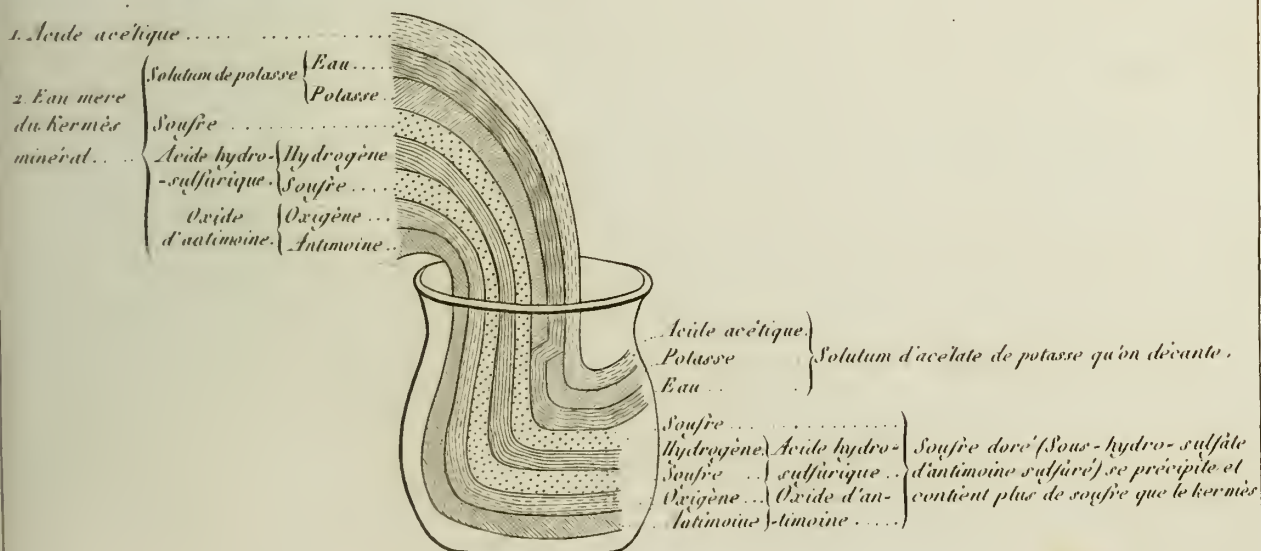 1. Acide acétique ..... ..............
2. Eau mere
du Kermès
minéral. . ..
Solutum de potasse
Eau .....
Potasse ..
Soufre ..............
Acide hydro-
-sulfurique.
Hydrogène
Soufre ....
Oxide
d'antimoine.
Oxigène ...
Antimoine ..
Acide acétique.
Potasse
Eau ..
Solutum d'acétate de potasse qu'on décante.
Soufre ..............
Hydrogène.
Soufre ..
Oxigène ...
Antimoine
Acide hydro-
sulfurique ..
Oxide d'an-
-timoine .....
Soufre doré (Sous-hydro-sulfate
d'antimoine sulfuré) se précipite et
contient plus de soufre que le kermès